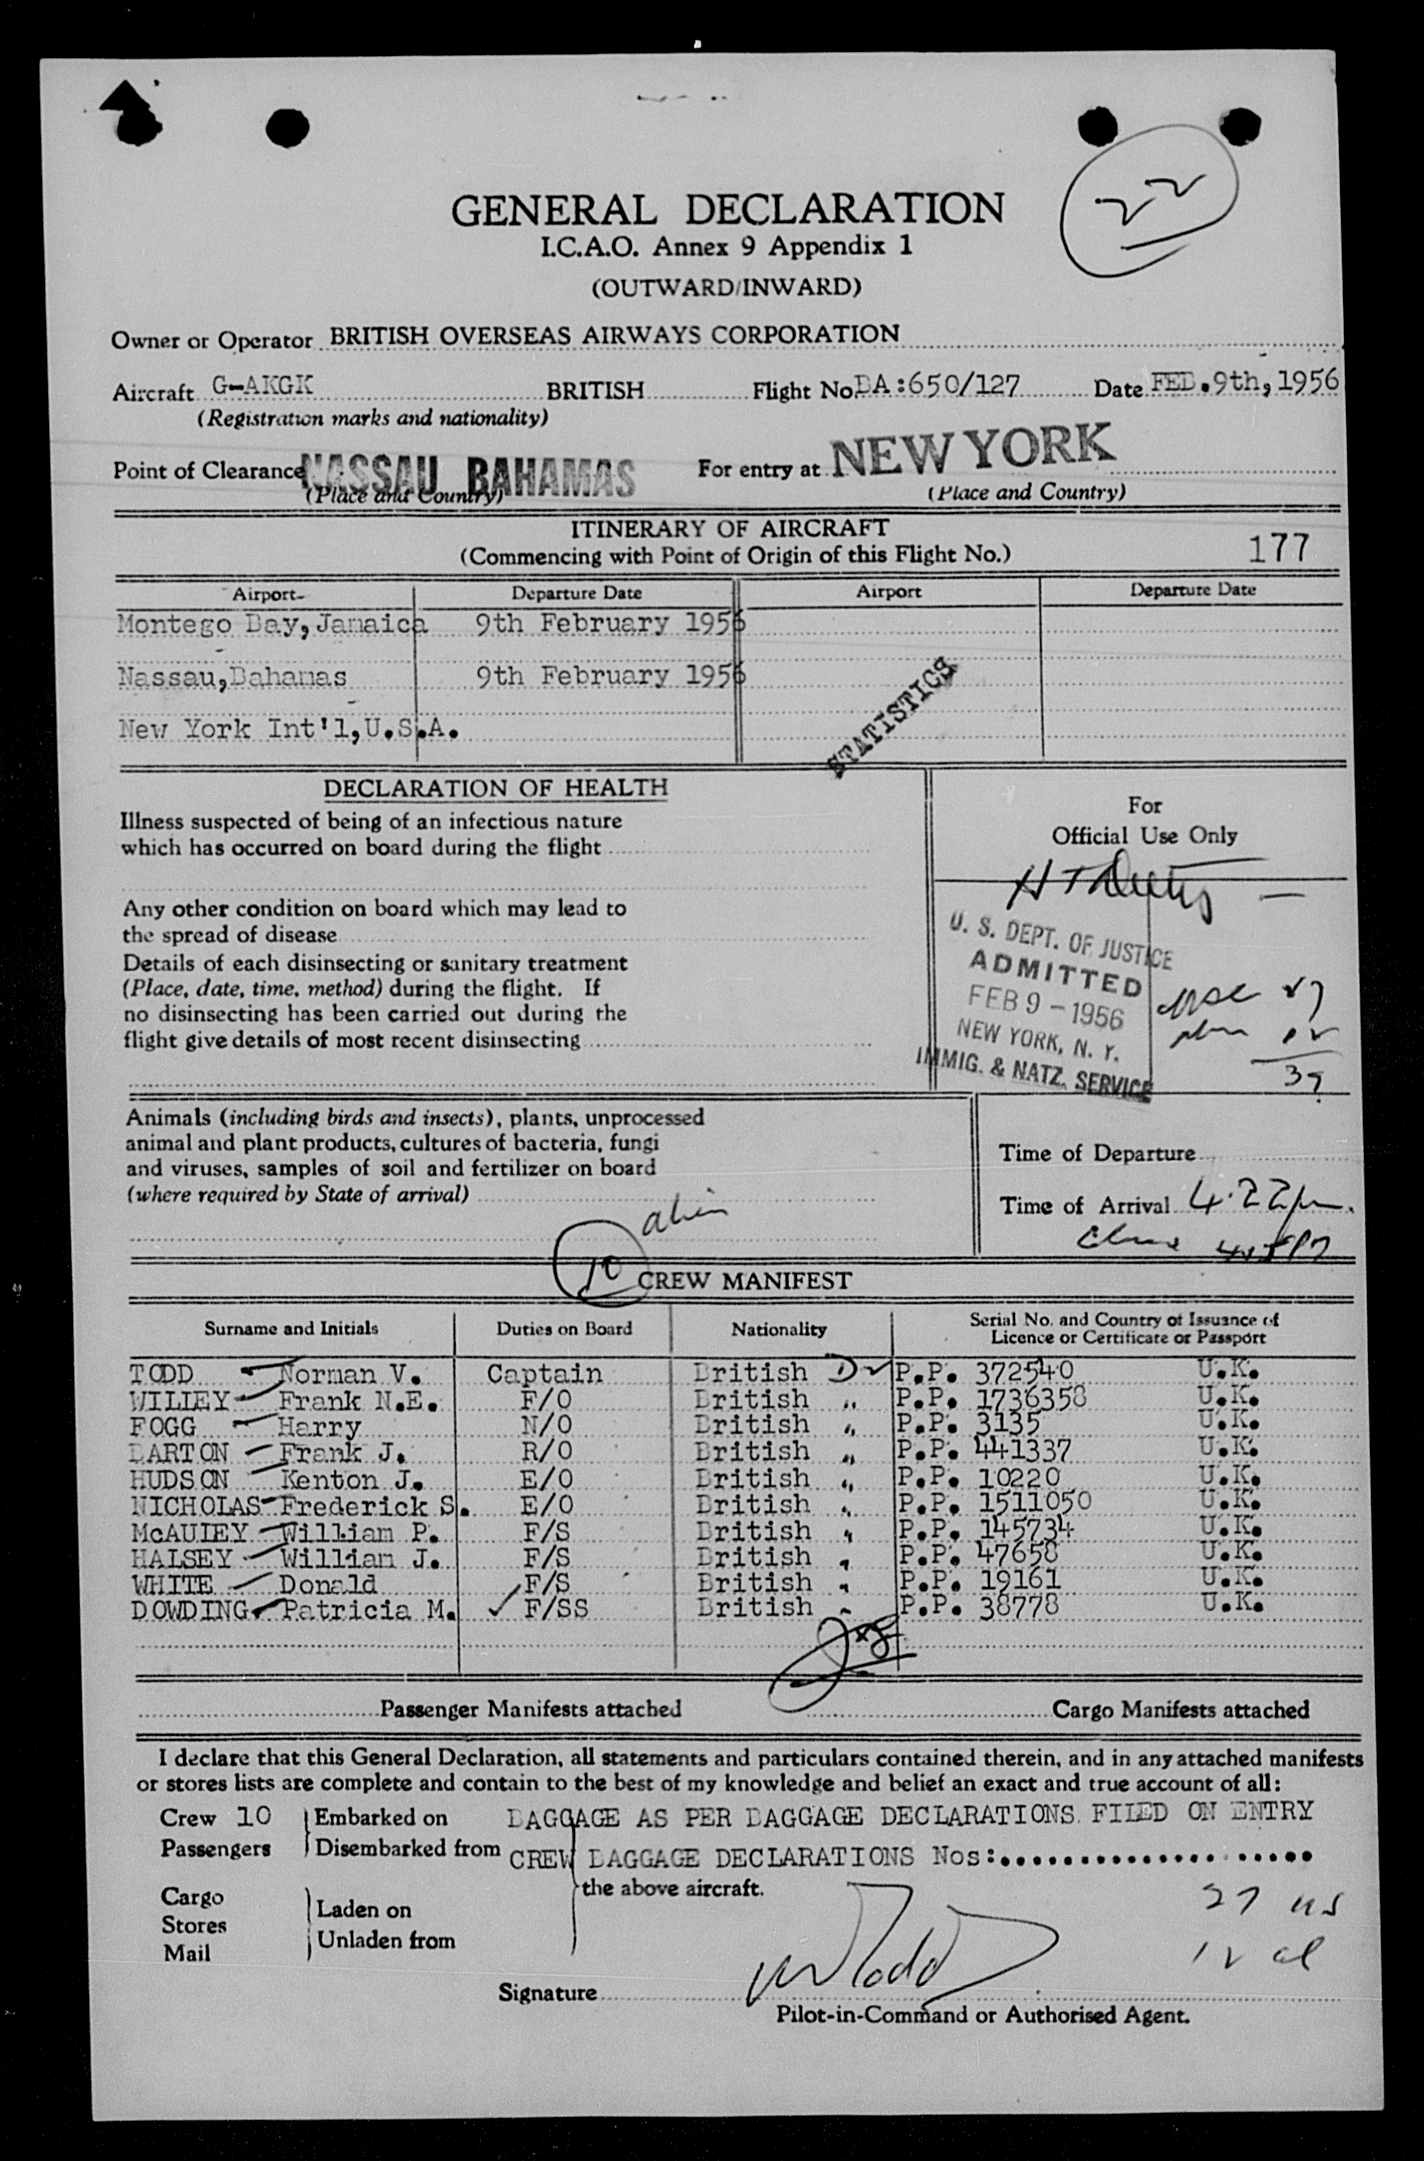 22
GENERAL DECLARATION
I.C.A.O. Annex 9 Appendix 1
(OUTWARD/INWARD)
Owner or Operator BRITISH OVERSEAS AIRWAYS CORPORATION
Aircraft G-AKGK BRITISH Flight No. BA:650/127 Date FEB.9th,1956
(Registration marks and nationality)
Point of Clearance NASSAU BAHAMAS For entry at NEW YORK
(Place and Country) (Place and Country)
ITINERARY OF AIRCRAFT
(Commencing with Point of Origin of this Flight No.) 177
Airport Departure Date Airport Departure Date
Montego Bay,Jamaica 9th February 1956
Nassau,Bahamas 9th February 1956
New York Int'l,U.S.A.
STATISTICS
DECLARATION OF HEALTH
Illness suspected of being of an infectious nature
which has occurred on board during the flight
Any other condition on board which may lead to
the spread of disease
Details of each disinsecting or sanitary treatment
(Place, date, time, method) during the flight. If
no disinsecting has been carried out during the
flight give details of most recent disinsecting
For
Official Use Only
U. S. DEPT. OF JUSTICE
ADMITTED
FEB 9 - 1956
NEW YORK, N. Y.
IMMIG. & NATZ. SERVICE
Animals (including birds and insects), plants, unprocessed
animal and plant products, cultures of bacteria, fungi
and viruses, samples of soil and fertilizer on board
(where required by State of arrival)
Time of Departure
Time of Arrival 4.22pm.
10 alien
CREW MANIFEST
Surname and Initials Duties on Board Nationality Serial No. and Country of Issuance of
Licence or Certificate or Passport
TODD Norman V. Captain British D P.P. 372540 U.K.
WILLEY Frank N.E. F/O British " P.P. 1736358 U.K.
FOGG Harry N/O British " P.P. 3135 U.K.
BARTON Frank J. R/O British " P.P. 441337 U.K.
HUDSON Kenton J. E/O British " P.P. 10220 U.K.
NICHOLAS Frederick S. E/O British " P.P. 1511050 U.K.
McAULEY William P. F/S British " P.P. 145734 U.K.
HALSEY William J. F/S British " P.P. 47658 U.K.
WHITE Donald F/S British " P.P. 19161 U.K.
DOWDING Patricia M. F/SS British " P.P. 38778 U.K.
Passenger Manifests attached Cargo Manifests attached
I declare that this General Declaration, all statements and particulars contained therein, and in any attached manifests
or stores lists are complete and contain to the best of my knowledge and belief an exact and true account of all:
Crew 10 Embarked on BAGGAGE AS PER BAGGAGE DECLARATIONS FILED ON ENTRY
Passengers Disembarked from CREW BAGGAGE DECLARATIONS Nos:
the above aircraft.
Cargo
Stores Laden on
Mail Unladen from
27 us
12 al
Signature
Pilot-in-Command or Authorised Agent.